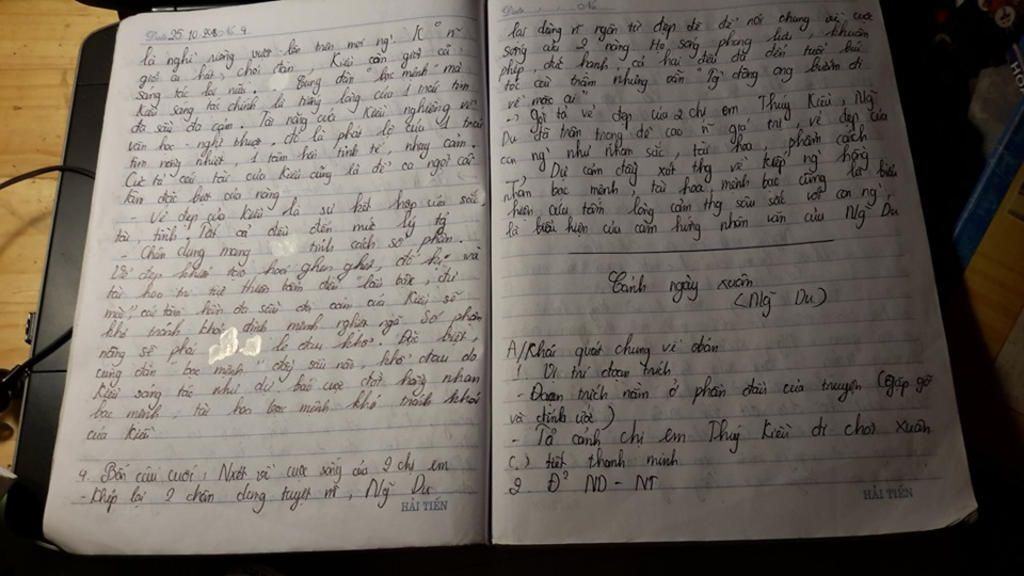 Date 25.10.208 No. 4
là nghề riêng vượt lên trên mọi ng'. K0 n~
giỏi ca hát, chơi đàn, Kiều còn giỏi cả
sáng tác lại nữa. Cung đàn "bạc mệnh" mà
Kiều sáng tác chính là tiếng lòng của 1 trái tim
đa sầu đa cảm. Tài năng của Kiều nghiêng về
văn học - nghệ thuật. Đó là phát lộ của 1 trái
tim nồng nhiệt, 1 tâm hồn tinh tế, nhạy cảm.
Cực tả cái tài của Kiều cũng là để ca ngợi cái
tâm đặc biệt của nàng
- Vẻ đẹp của Kiều là sự kết hợp của sắc,
tài, tình. Tất cả đều đến mức lý tg
- Chân dung mang tính cách số phận.
Vẻ đẹp khiến tạo hoá ghen ghét, đố kị và
tài hoa trí tuệ thiên bẩm "lai bậc", "đủ
mùi" cái tâm hồn đa sầu đa cảm của Kiều sẽ
khó tránh khỏi định mệnh nghiệt ngã. Số phận
nàng sẽ phải đau khổ. Đặc biệt,
cung đàn "bạc mệnh" đầy sầu não, khổ đau do
Kiều sáng tác như dự báo cuộc đời hồng nhan
bạc mệnh, tài hoa bạc mệnh khó tránh khỏi
của Kiều
4. Bốn câu cuối: Nhận xét về cuộc sống của 2 chị em
- Khép lại 2 chân dung tuyệt mĩ, Ng~ Du
HẢI TIẾN
Date No
lại dùng n~ ngôn từ đẹp đẽ để nói chung về cuộc
sống của 2 nàng. Họ sống phong lưu, khuôn
phép, đức hạnh, cả hai đều đã đến tuổi búi
tóc cài trâm nhưng vẫn "Tg` đông ong bướm đi
về mặc ai"
-> Gợi tả vẻ đẹp của 2 chị em Thuý Kiều, Ng~
Du đã trân trọng đề cao n~ giá trị, vẻ đẹp của
con ng' như nhan sắc, tài hoa, phẩm cách
Dự cảm đầy xót thg về kiếp ng' hồng
nhan bạc mệnh, tài hoa mệnh bạc cũng là biểu
hiện của tấm lòng cảm thg sâu sắc với con ng'
là biểu hiện của cảm hứng nhân văn của Ng~ Du
Cảnh ngày xuân
(Ng~ Du)
A/Khái quát chung về đoạn
1. Vị trí đoạn trích
- Đoạn trích nằm ở phần đầu của truyện (gặp gỡ
và đính ước)
- Tả cảnh chị em Thuý Kiều đi chơi xuân
(.) tiết thanh minh
2 Đ² ND - NT
HẢI TIẾN